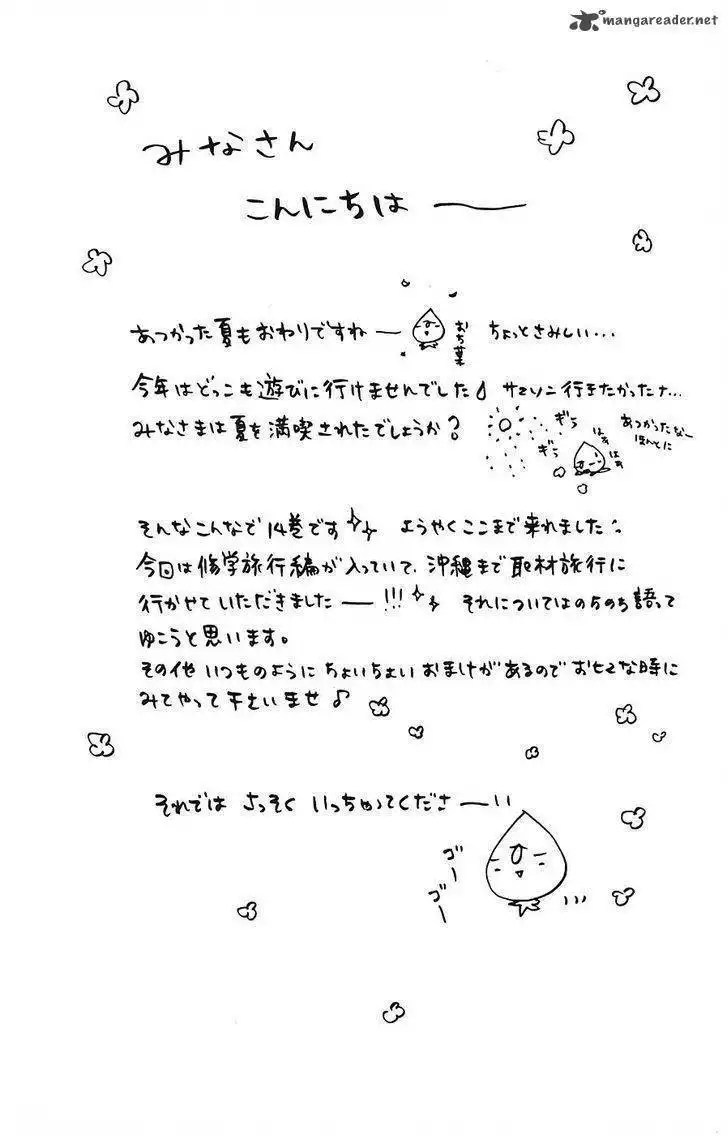 mangareader.net
みなさん
こんにちはー
あつかった夏もおわりですねー ちょっとさみしい…
おち葉
今年はどっこも遊びに行けませんでした サマソニ行きたかったナ…
みなさまは夏を満喫されたでしょうか?
ぎら
ぎら
はぁ
はぁ
あつかったなー
ほんとに
そんなこんなで14巻です ようやくここまで来れました
今回は修学旅行編が入っていて、沖縄まで取材旅行に
行かせていただきましたー!!! それについてはのちのち語って
ゆこうと思います。
その他いつものようにちょいちょいおまけがあるのでおヒマな時に
みてやって下さいませ♪
それではさっそくいっちゃってくださーい
ゴー
ゴー